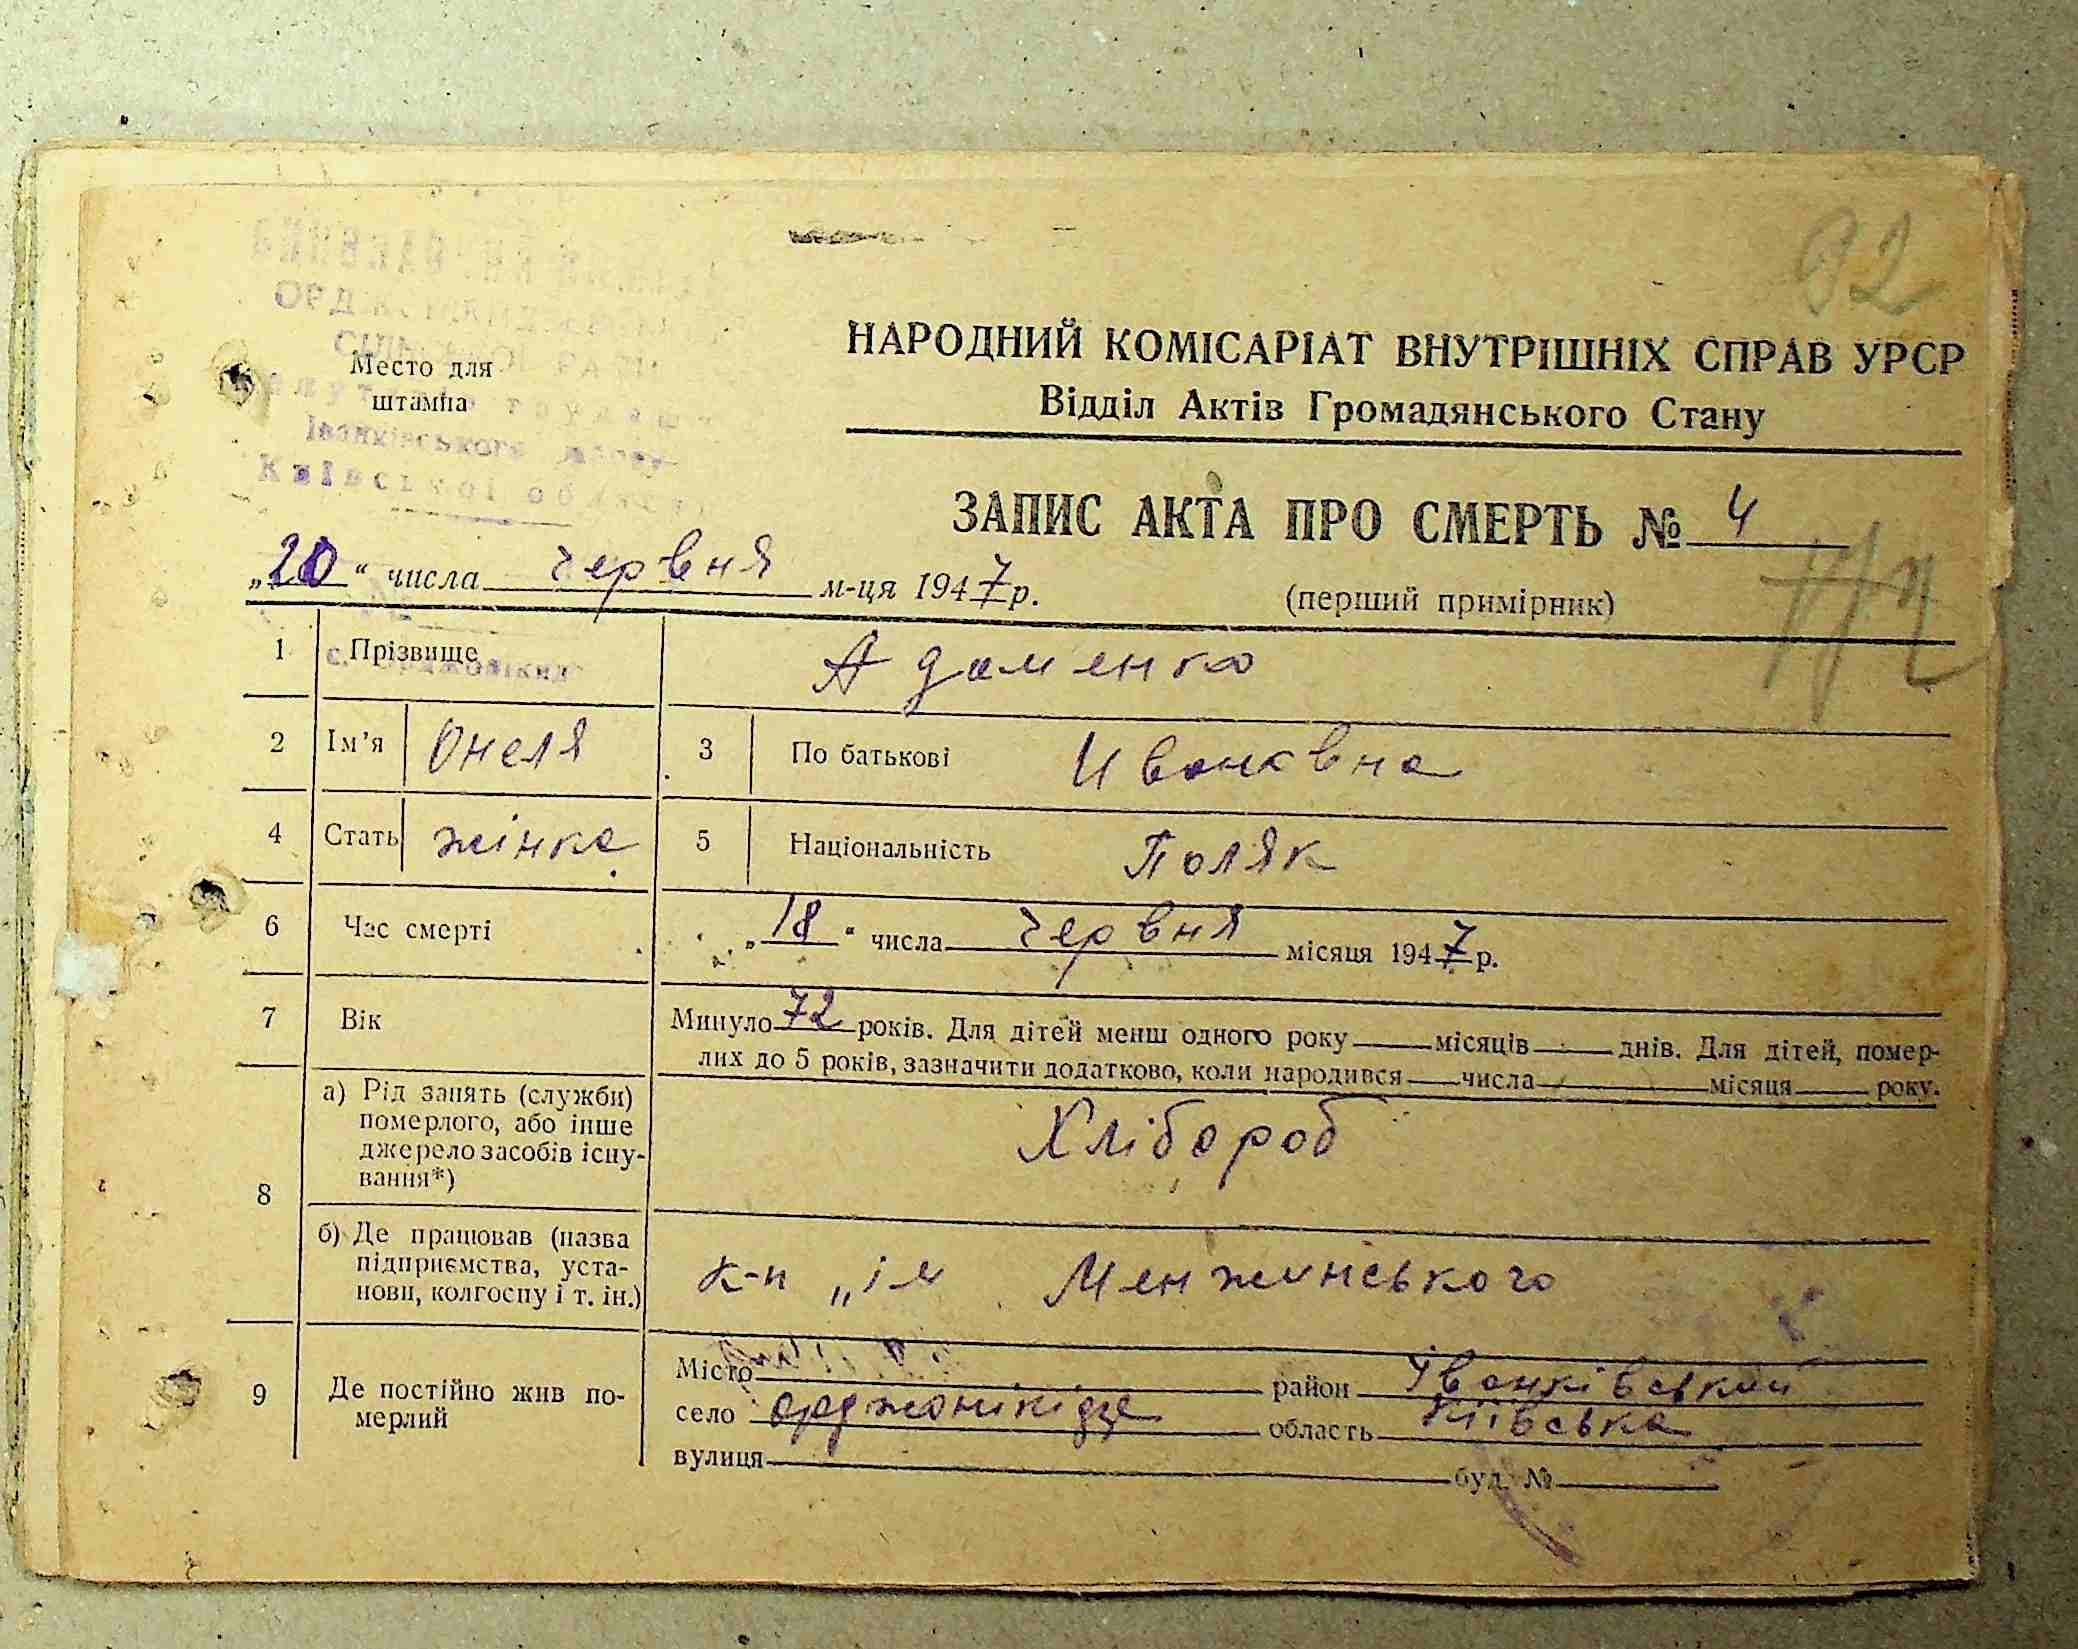 92
НАРОДНИЙ КОМІСАРІАТ ВНУТРІШНІХ СПРАВ УРСР
Відділ Актів Громадянського Стану
Место для
штампа
Іванківського
Київської області
ЗАПИС АКТА ПРО СМЕРТЬ № 4
„20“ числа червня м-ця 1947 р.
(перший примірник)
1 Прізвище Адаменко
2 Ім’я Онеля 3 По батькові Иванквна
4 Стать жінка 5 Національність Поляк
6 Час смерті „18“ числа червня місяця 1947 р.
7 Вік Минуло 72 років. Для дітей менш одного року місяців днів. Для дітей, помер-
лих до 5 років, зазначити додатково, коли народився числа місяця року.
8 а) Рід занять (служби)
померлого, або інше
джерело засобів існу-
вання*)
Хлібороб
б) Де працював (назва
підприємства, уста-
нови, колгоспу і т. ін.)
к-п „ім Менжинського
9 Де постійно жив по-
мерлий
Місто район Іванківський
село орджонікідзе область Київська
вулиця буд. №